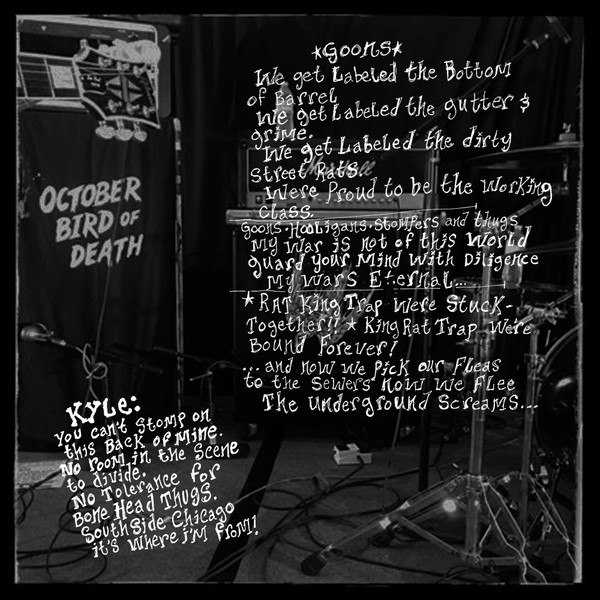 *Goons*
We get Labeled the Bottom
of Barrel
We get Labeled the gutter &
grime.
We get Labeled the dirty
Street Rats.
Were Proud to be the Working
Class.
Goons. Hooligans. Stompers and thugs
My War is not of this World
guard your Mind With Diligence
My Wars Eternal...
*RAT King Trap Were Stuck-
Together!! * King Rat Trap Were
Bound Forever!
...and now we Pick our Fleas
to the Sewers now we Flee
The Underground Screams...
OCTOBER
BIRD OF
DEATH
KYLe:
You can't Stomp on
this Back of Mine.
No room in the Scene
to divide.
No Tolerance for
Bone Head Thugs.
SouthSide Chicago
it's Where i'M from!